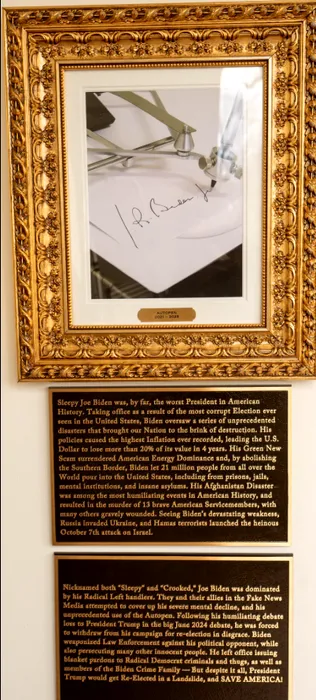 R. Biden Jr
AUTOPEN
2021 - 2025
Sleepy Joe Biden was, by far, the worst President in American
History. Taking office as a result of the most corrupt Election ever
seen in the United States, Biden oversaw a series of unprecedented
disasters that brought our Nation to the brink of destruction. His
policies caused the highest Inflation ever recorded, leading the U.S.
Dollar to lose more than 20% of its value in 4 years. His Green New
Scam surrendered American Energy Dominance and, by abolishing
the Southern Border, Biden let 21 million people from all over the
World pour into the United States, including from prisons, jails,
mental institutions, and insane asylums. His Afghanistan Disaster
was among the most humiliating events in American History, and
resulted in the murder of 13 brave American Servicemembers, with
many others gravely wounded. Seeing Biden's devastating weakness,
Russia invaded Ukraine, and Hamas terrorists launched the heinous
October 7th attack on Israel.
Nicknamed both "Sleepy" and "Crooked," Joe Biden was dominated
by his Radical Left handlers. They and their allies in the Fake News
Media attempted to cover up his severe mental decline, and his
unprecedented use of the Autopen. Following his humiliating debate
loss to President Trump in the big June 2024 debate, he was forced
to withdraw from his campaign for re-election in disgrace. Biden
weaponized Law Enforcement against his political opponent, while
also persecuting many other innocent people. He left office issuing
blanket pardons to Radical Democrat criminals and thugs, as well as
members of the Biden Crime Family — But despite it all, President
Trump would get Re-Elected in a Landslide, and SAVE AMERICA!